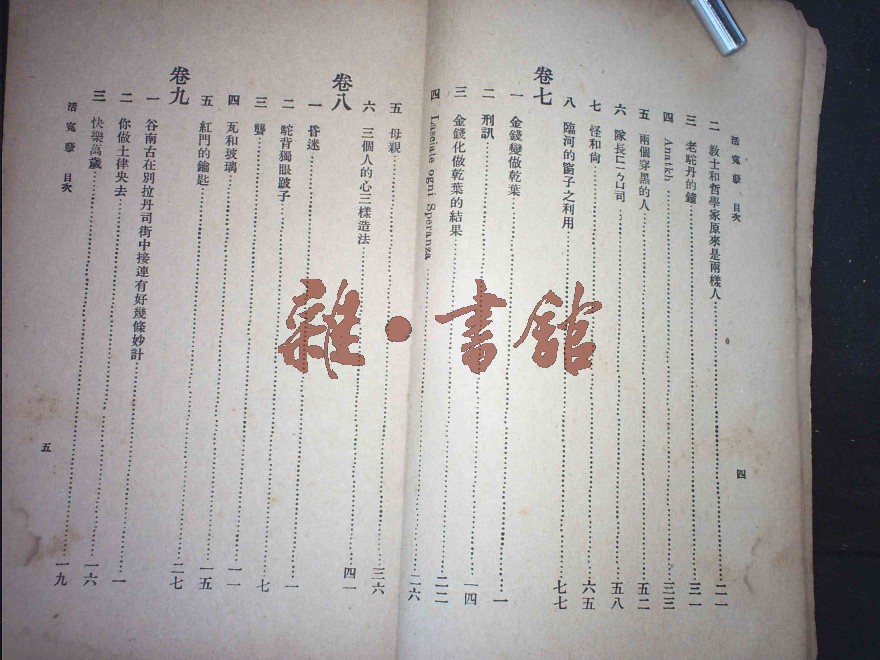 活冤孽 目次
二 教士和哲學家原來是兩樣人 二一
三 老駝丹的鐘 三一
四 Anatkh 三三
五 兩個穿黑的人 五二
六 隊長 司 五八
七 怪和尙 六五
八 臨河的窗子之利用 七七
卷七
一 金錢變做乾葉 一
二 刑訊 一四
三 金錢化做乾葉的結果 二二
四 Lasciale ogni Speranza 二六
四
五 母親 三六
六 三個人的心三樣造法 四一
卷八
一 昏迷 一
二 駝背獨眼跛子 七
三 聾 一一
四 瓦和玻璃 一五
五 紅門的鑰匙 二七
卷九
一 谷南右在別拉丹司街中接連有好幾條妙計 一
二 你做土律央去 一六
三 快樂萬歲 一九
活冤孽 目次
五
雜·書館